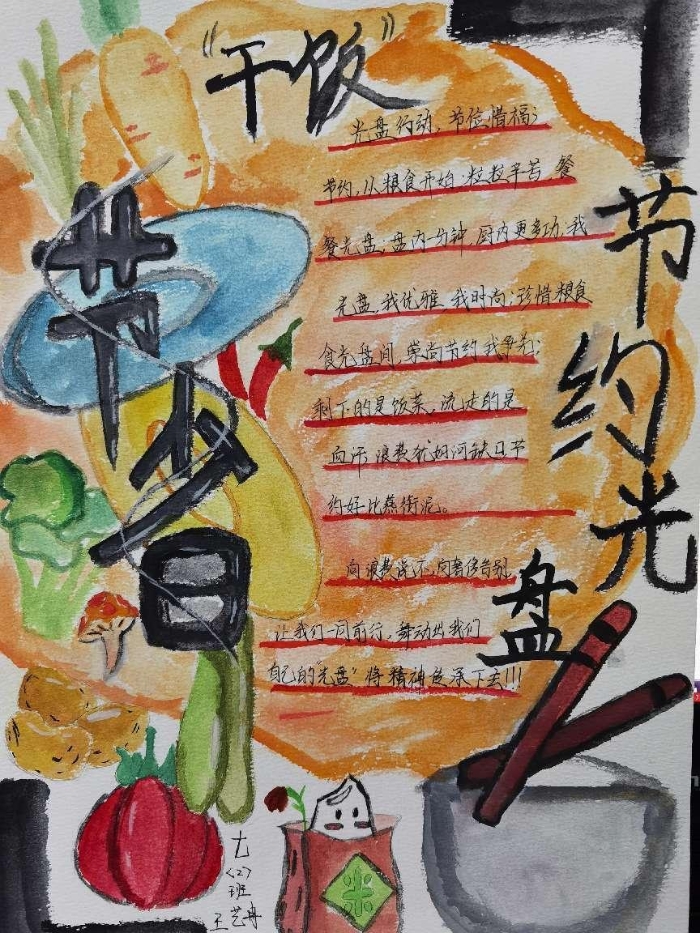 "干饭"
光盘行动，节俭惜福；
节约，从粮食开始；粒粒辛苦，餐
餐光盘；盘内一分钟，厨内更多功；我
光盘，我优雅，我时尚；珍惜粮食
食光盘间，崇尚节约我争先；
剩下的是饭菜，流走的是
血汗，浪费犹如河缺口节
约好比燕衔泥。
向浪费说不，向奢侈告别
让我们一同前行，舞动出我们
自己的"光盘"将精神传承下去!!!
节省
节约光
盘
七
〈2〉
班
王艺冉
米